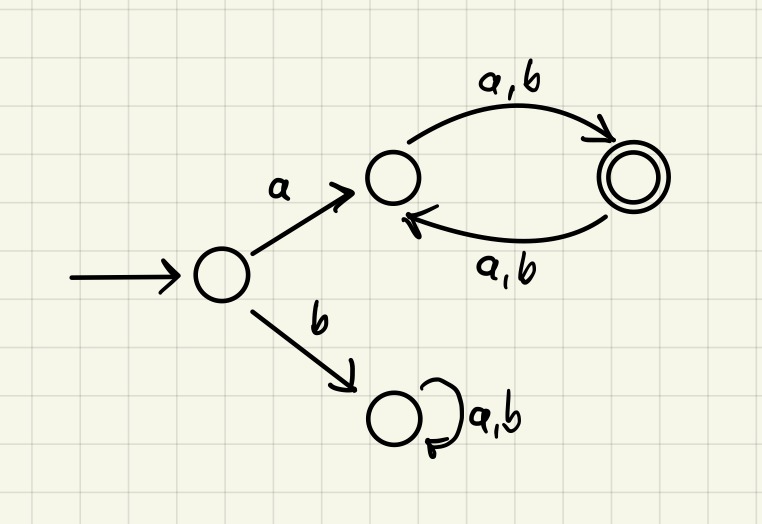 a,b
a
a,b
b
a,b